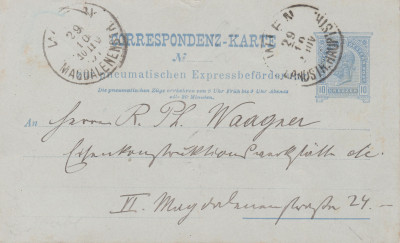 CORRESPONDENZ-KARTE
№
pneumatischen Expressbeförderung
Die pneumatischen Züge verkehren von 8 Uhr Früh bis 9 Uhr Abend
alle 20 Minuten.
WIEN
29
10
MAGDALENEN
WIEN
29
10
10
10
An Herrn R. Ph. Waagner
Eisenkonstruktionswerkstätte etc.
VI. Magdalenenstraße 24.–